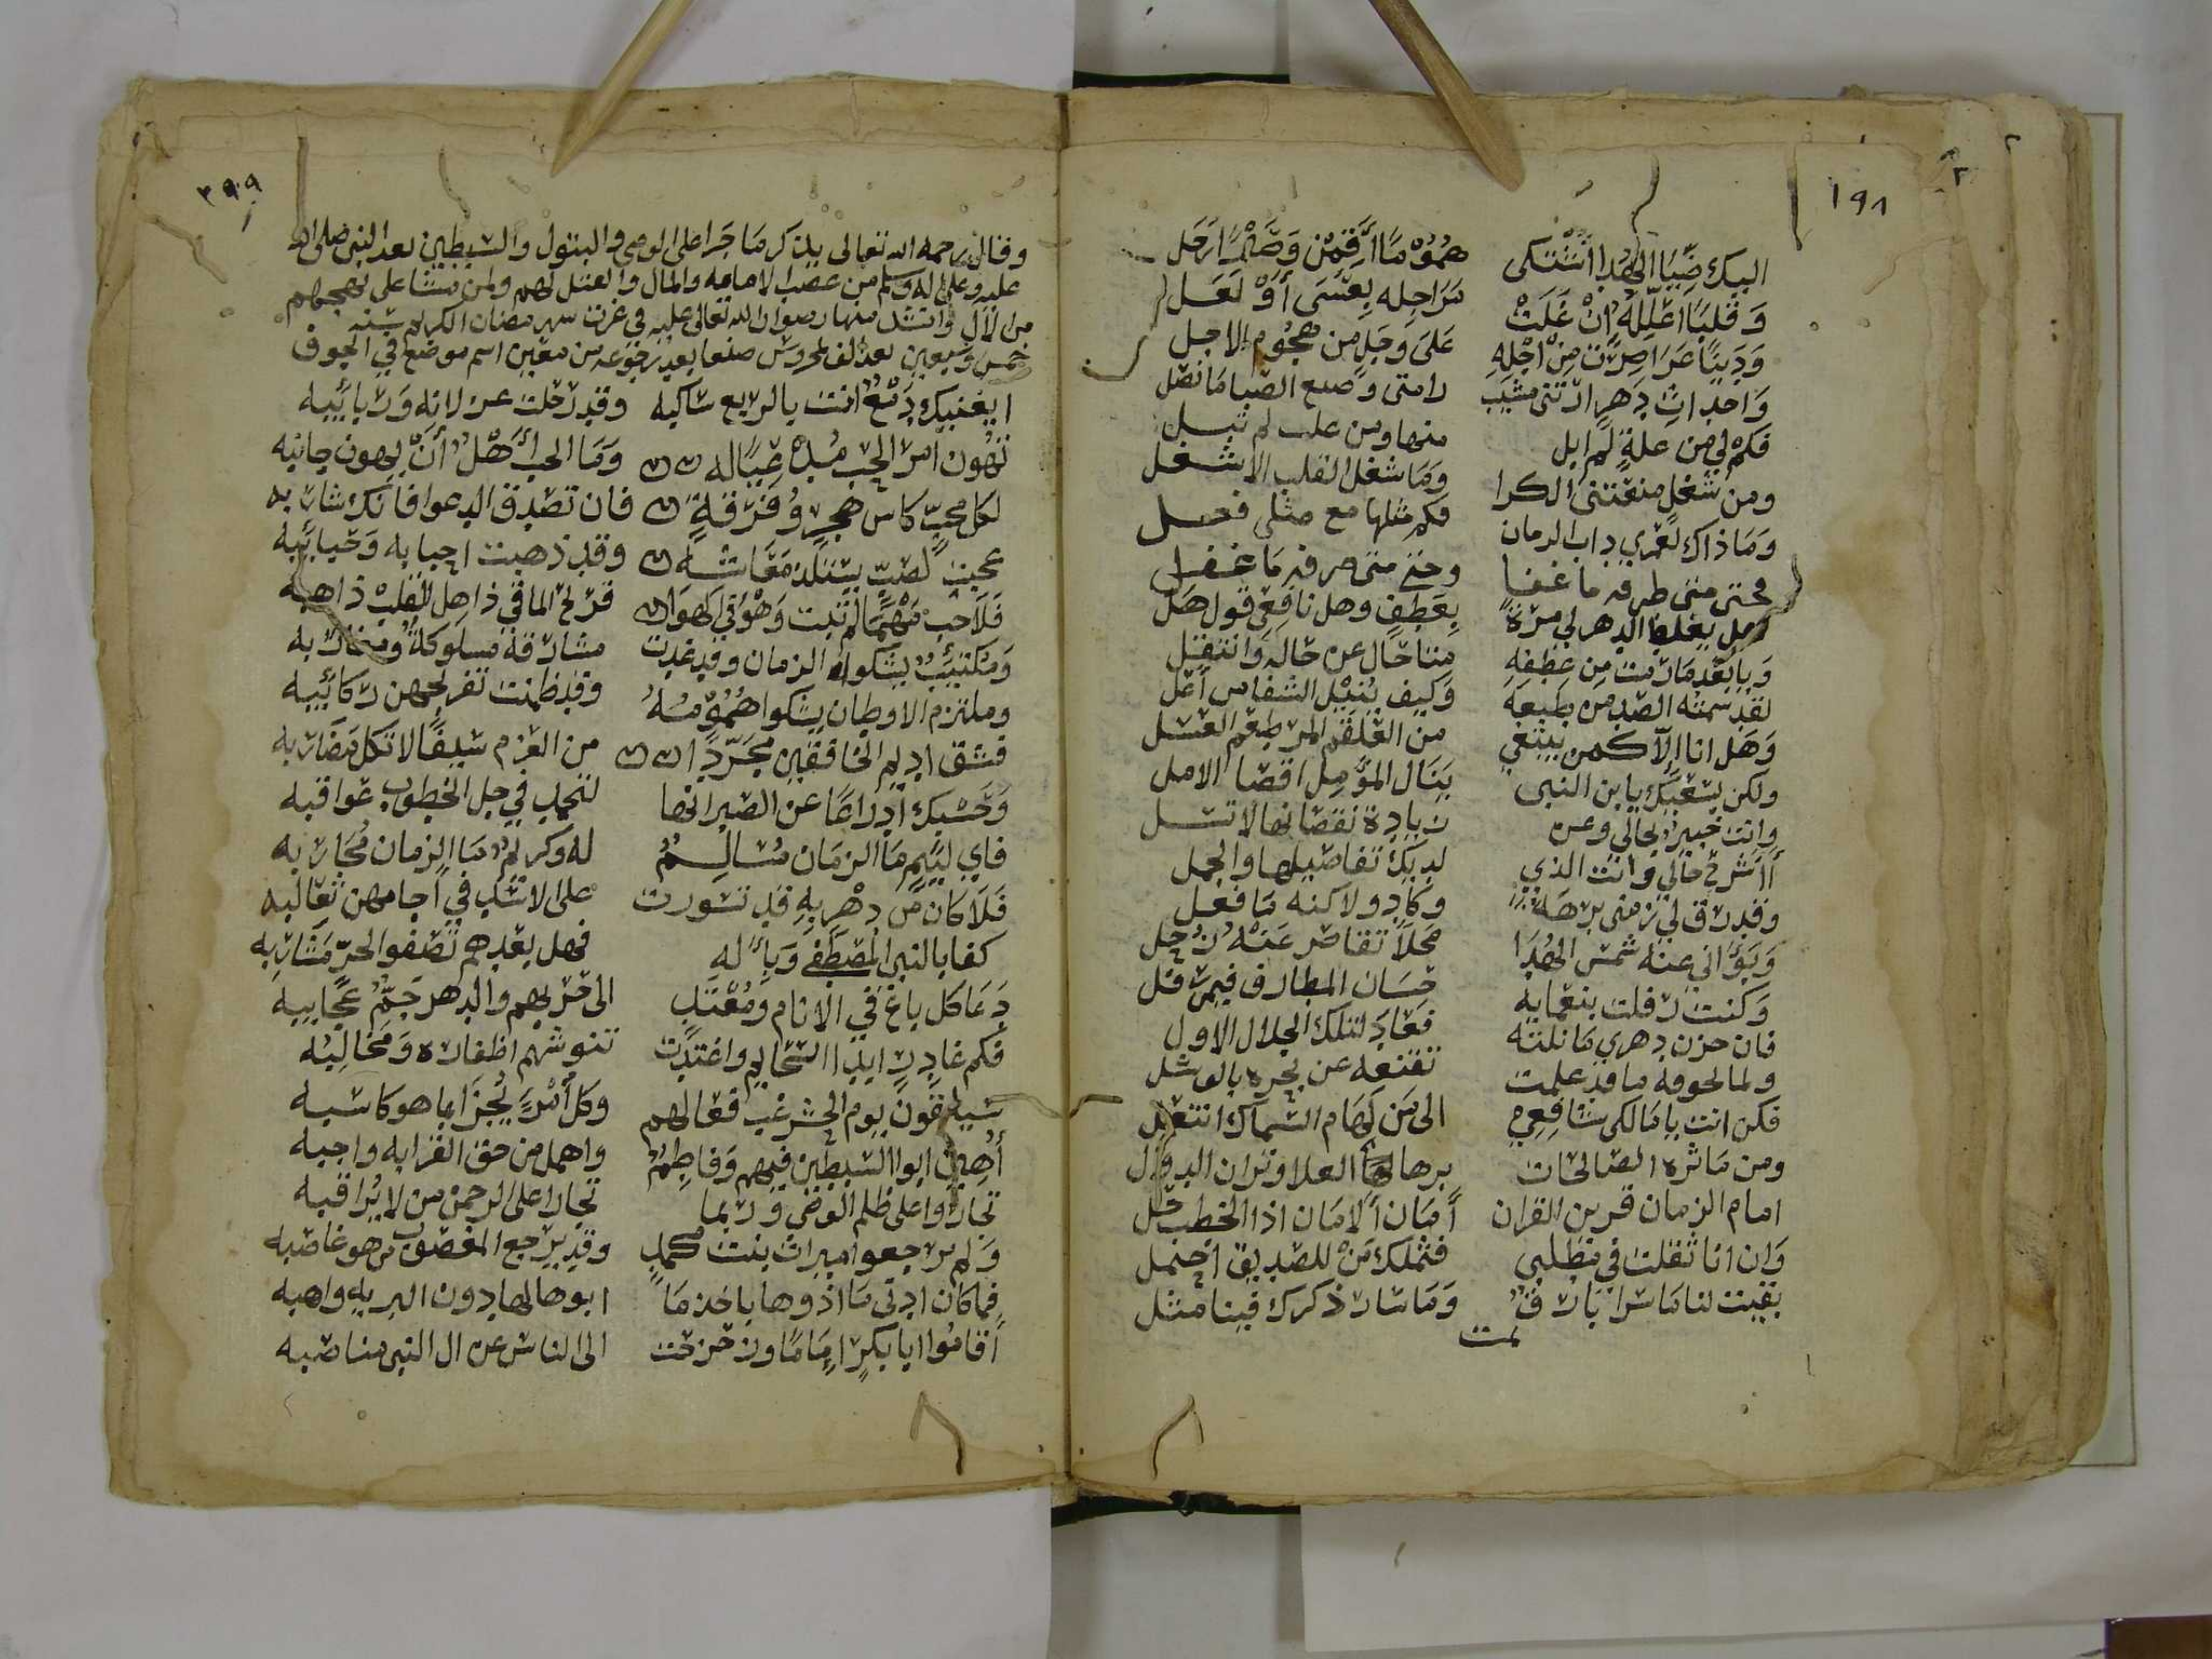 ١٩٨
اليك ضيا الهدا اشتكى هموما اقمن وصبرا رحل
وقلبا اعلله ان غلت مراجله بعسى او لعل
ودينا عرا صرت من اجله على وجل من هجوم الاجل
واحداث دهر اتتنى مشيب وصبغ الصبا ما نصل
فكم لي من علة لم ابل منها ومن علت لم تبل
ومن شغل منعتنى الكرا وما شغل القلب الا شغل
وما ذاك لعمري داب الزمان فكم مثلها مع مثلى فعل
حتى متى طرفه ما غفا وحتى متى صرفه ما غفل
وهل يغلط الدهر لي مرة بعطف وهل نافعي قول هل
ويا بعد ما رمت من عطفه متا حال عن حاله وانتقل
لقد سمته الضد من طبعه وكيف ينيل الشفا من اعل
وهل انا الا كمن يبتغي من العلقم المر طعم العسل
ولكن بسعيك يابن النبى ينال المؤمل اقصا الامل
وانت خبير بحالي وعن زيادة نقصانها لا تسل
أاشرح حالي وانت الذي لديك تفاصيلها والجمل
وقد رق لي زمنى برهة وكاد ولاكنه ما فعل
وبوأني عنه شمس الهدا محلا تقاصر عنه زحل
وكنت رفلت بنعمايه حسان المطارف فيمن رفل
فان حزن دهري ما نلته فعاد لتلك الخلال الاول
ولما لحوفه ما قد علمت تقنعه عن بحره بالوشل
فكن انت يا مالكى شافعي الى من لهام السماك انتعل
ومن ماثره الصالحات برهان العلا وتران الدول
امام الزمان قرين القران أمان الامان اذا الخطب حل
وان انا ثقلت في مطلبي فمثلك من للصديق احتمل
بقيت لنا ما سرا بارق وما سار ذكرك فينا مثل
تمت
٣٩٩
وقال رحمه الله تعالى يذكر ما جرا على الوصي والبتول والسبطين بعد النبي صلى الله
عليه وعلى اله وسلم من غصب الامامه والمال والقتل لهم ولمن مشا على نهجهم
من الال وانشد منها رضوان الله تعالى عليه في غرت شهر رمضان الكريم سنه
خمس وسبعين بعد الف بمحروس صنعا بعد رجوعه من معين اسم موضع في الجوف
ايغنيك دمع انت يا لربع ساكبه وقد رحلت غزلانه وربائبه
تهون امر الحب مدعيا له وما الحب أهل ان يهون جانبه
لكل محب كاس هجر وفرقة فان تصدق الدعوا فانك شاربه
عجبت لصب يستلذ معاشه وقد ذهبت احبابه وحبائبه
فلا حب مهما لم يبت وهو في الهوا قريح الماقي ذاهل القلب ذاهبه
ومكتئب يشكوا الزمان وقد غدت مشارقة مسلوكة ومغاربه
وملتزم الاوطان يشكوا همومه وقد ظمنت تفريجهن ركائبه
فشق اديم الخافقين مجردا من العزم سيفا لا تكل مضاربه
وحسبك ادراعا عن الصبر انها لتحمد في جل الخطوب عواقبه
فاي لئيم ما الزمان مسالم له وكريم ما الزمان محاربه
فلا كان من دهر به قد تسورت على الاسد في اجامهن ثعالبه
كفا بالنبي المصطفى وبأله فهل بعدهم تصفوا لحر مشاربه
دعا كل باغ في الانام ومعتد الى حربهم والدهر جم عجايبه
فكم غادر ايدا المخاليم واغتدت تنوشهم اظفاره ومخالبه
سيلقون يوم الحشر غب فعالهم وكل أمرء يجزا بما هو كاسبه
أهين ابوا السبطين فيهم وفاطم واهمل من حق القرابه واجبه
تجاروا على ظلم الوصي وربما تجارا على الرحمن من لا يراقبه
ولم يرجعوا ميراث بنت محمد وقد يرجع المغصوب من هو غاصبه
فما كان ادنى ما اذوها باخذ ما ابوها لها دون البريه واهبه
أقاموا ابا بكر إماما وزحزحت الى الناس عن ال النبي مناصبه